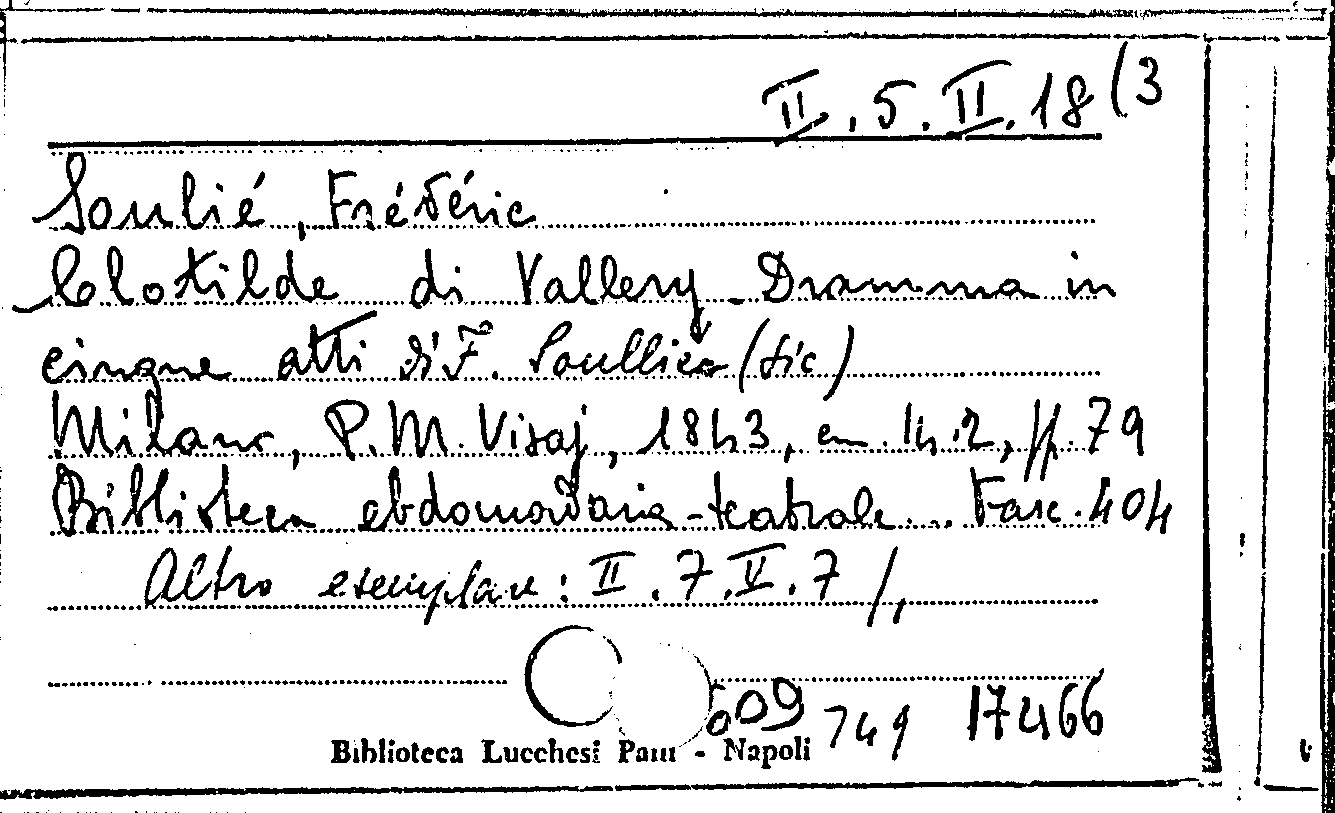 II.5.II.18(3
Soulié, Frédéric
Clotilde di Vallery - Dramma in
cinque atti di F. Soullié (sic)
Milano, P. M. Visaj, 1843, cm. 14.2, pp. 79
Biblioteca ebdomadaria-teatrale... Fasc. 404
Altro esemplare: II.7.V.7/,
609 749 17466
Biblioteca Lucchesi Palli - Napoli